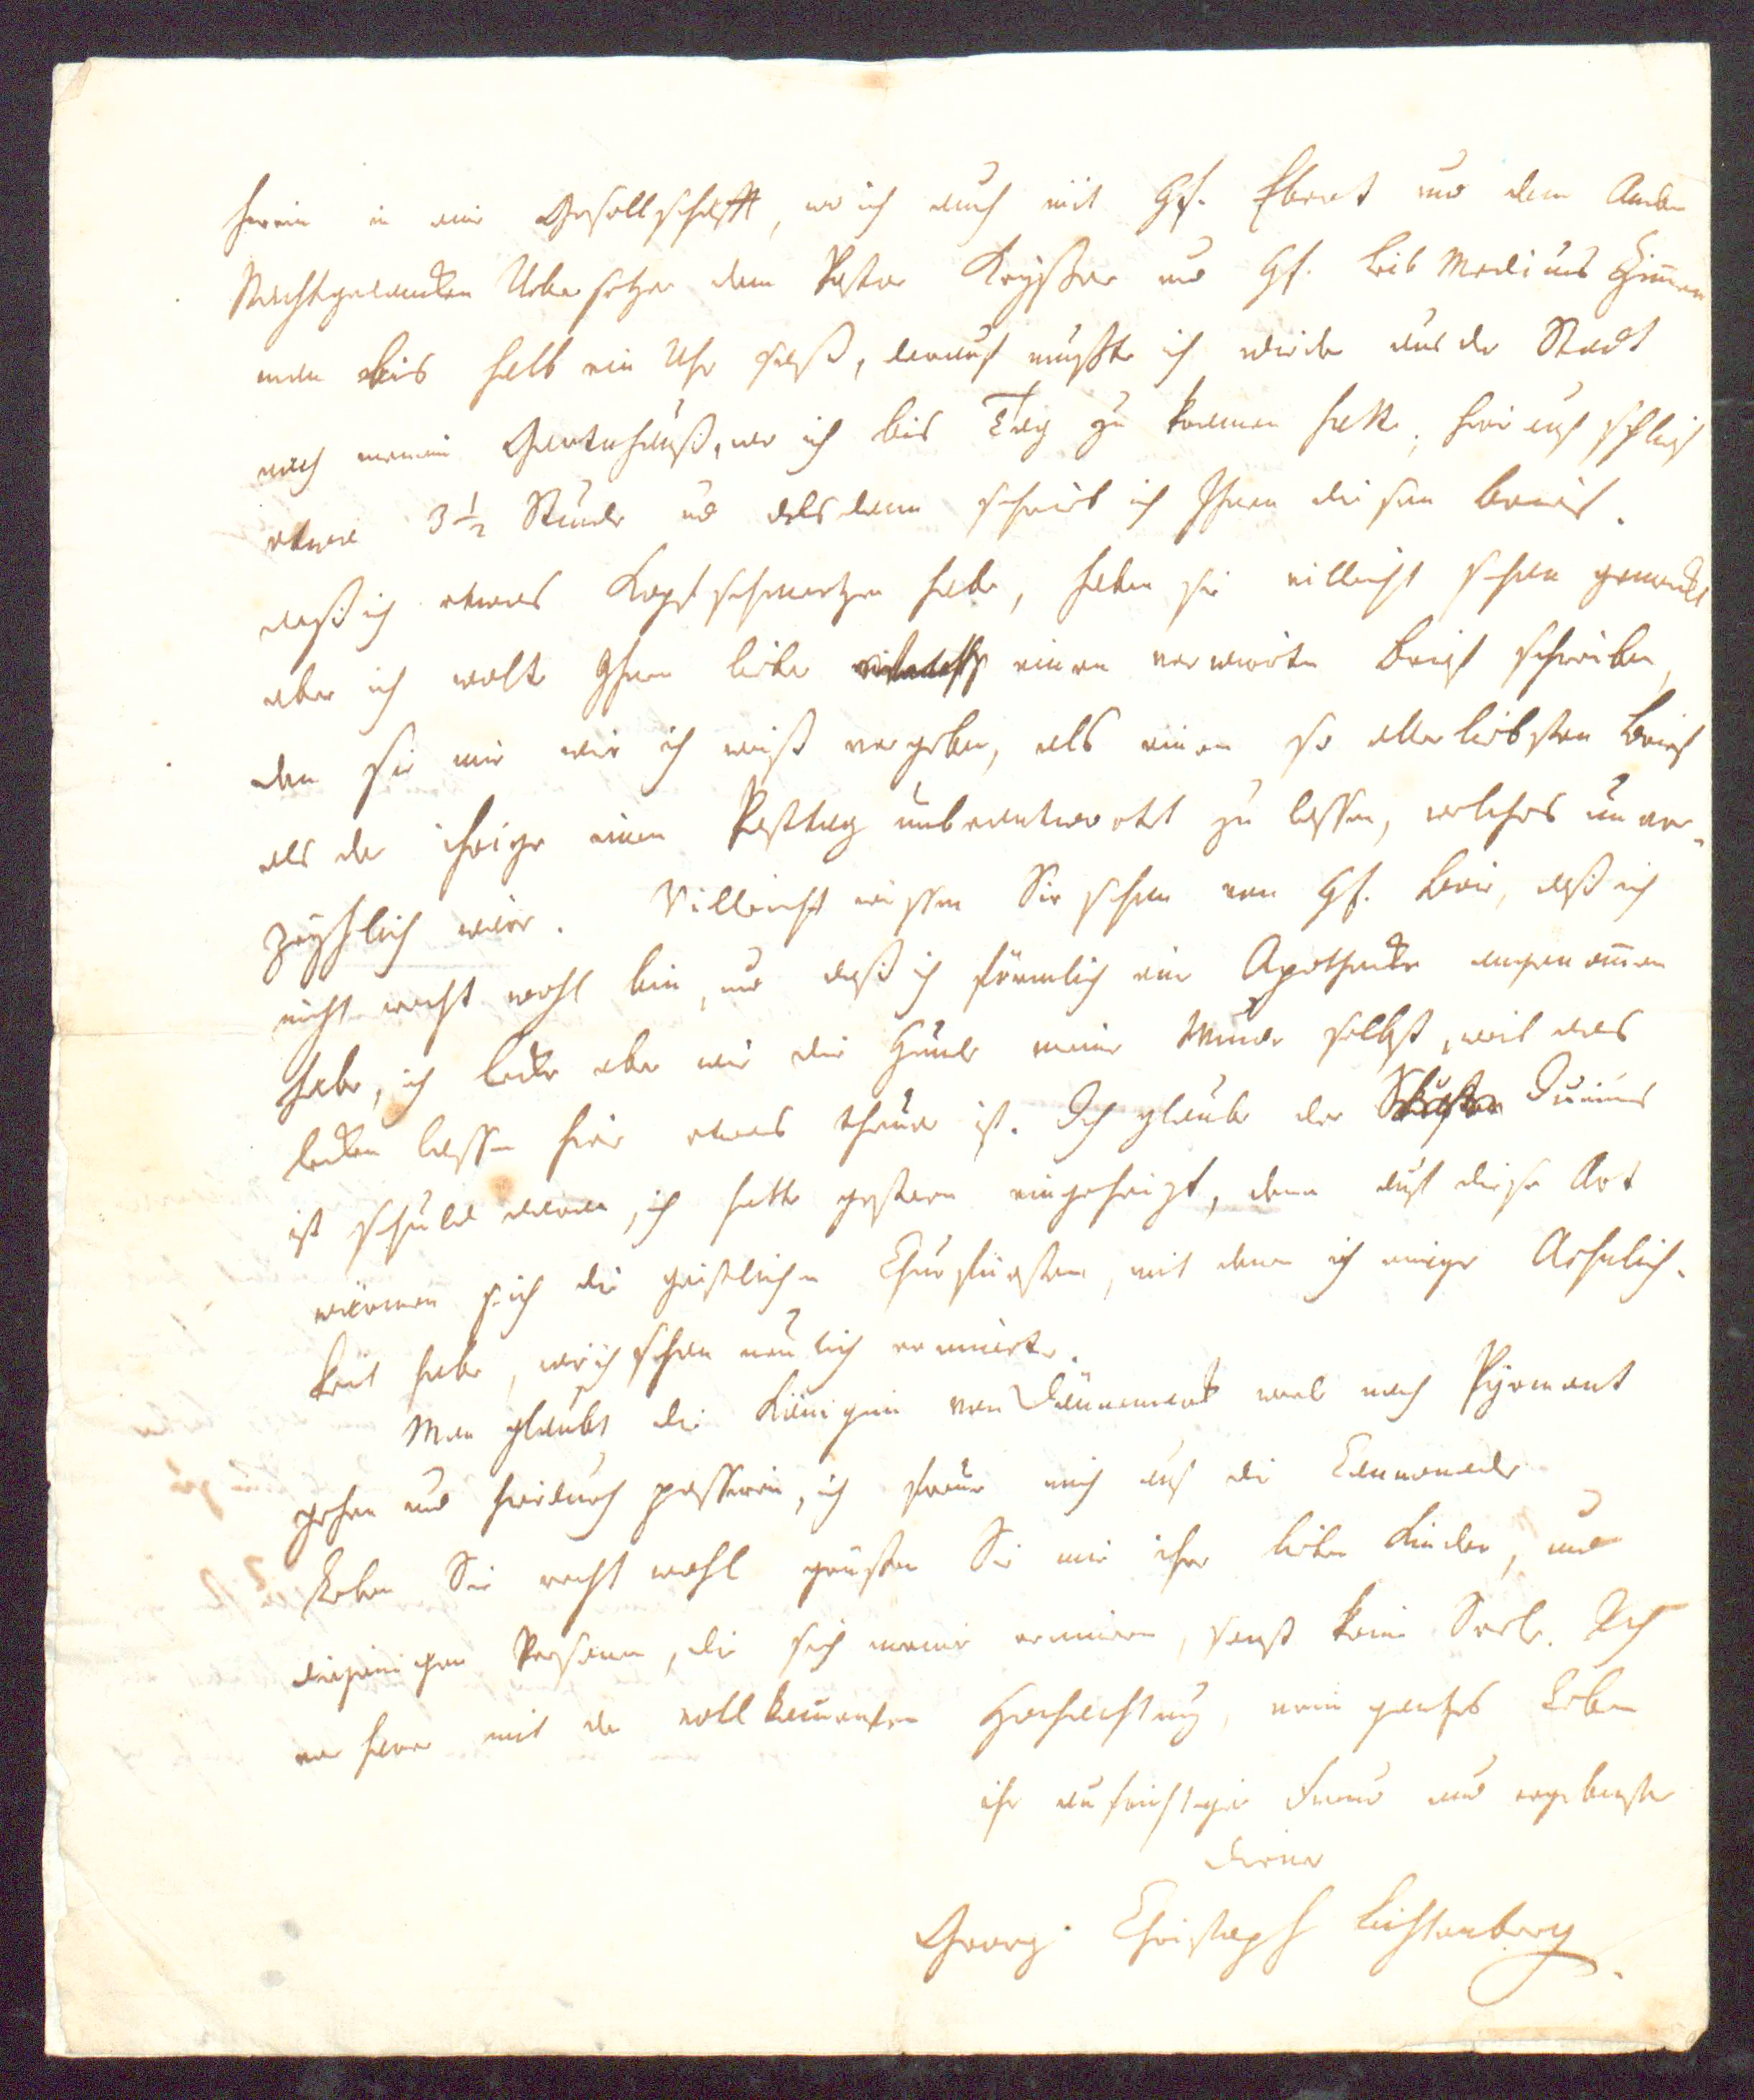 herein in eine Gesellschafft, wo ich auch mit HE. Ebert und dem Andern
Nachtgedancken Uebersetzer dem Pastor Kayßer und HE. Leib Medicus Zimmer
man bis halb ein Uhr saß, darauf mußte ich wieder aus der Stadt
nach meinem Gartenhauß, wo ich bis Tag zu kramen hatte, hierauf schlief
etwa 3 ½ Stunde und alsdann schrieb ich Ihnen diesen brief.
daß ich etwas Kopfschmertzen habe, haben sie villeicht schon gemerckt
aber ich wolte Ihnen lieber einen verwirten Brief schreiben,
den sie mir wie ich weiß vergeben, als einen so allerliebsten Brief
als der ihrige einen Posttag unbeantwortet zu lassen, welches unver-
zeyhlich wäre. Villeicht wissen Sie schon von HE. Boie, daß ich
nicht recht wohl bin, und daß ich förmlich eine Apothecke angenommen
habe, ich lecke aber wie die Hunde meine Wunde selbst, weil das
lecken lassen hier etwas theuer ist. Ich glaube der Junius
ist schuld daran, ich hatte gestern eingeheizt, denn auf diese Art
wärmen sich die geistlichen Churfürsten, mit denen ich einige Aehnlich-
keit habe, wie ich schon neulich erinnerte.
Man glaubt die Königin von Dännemark werde nach Pyrmont
gehen und hierdurch passiren, ich freue mich auf die Cannonade
Leben Sie recht wohl grüßen Sie mir ihre lieben Kinder, und
diejenigen Personen, die sich meiner erinnern, sonst keine Seele. Ich
verharre mit der vollkommensten Hochachtung, mein gantzes Leben
ihr aufrichtiger Freund und ergebenster
Diener
Georg Christoph Lichtenberg.